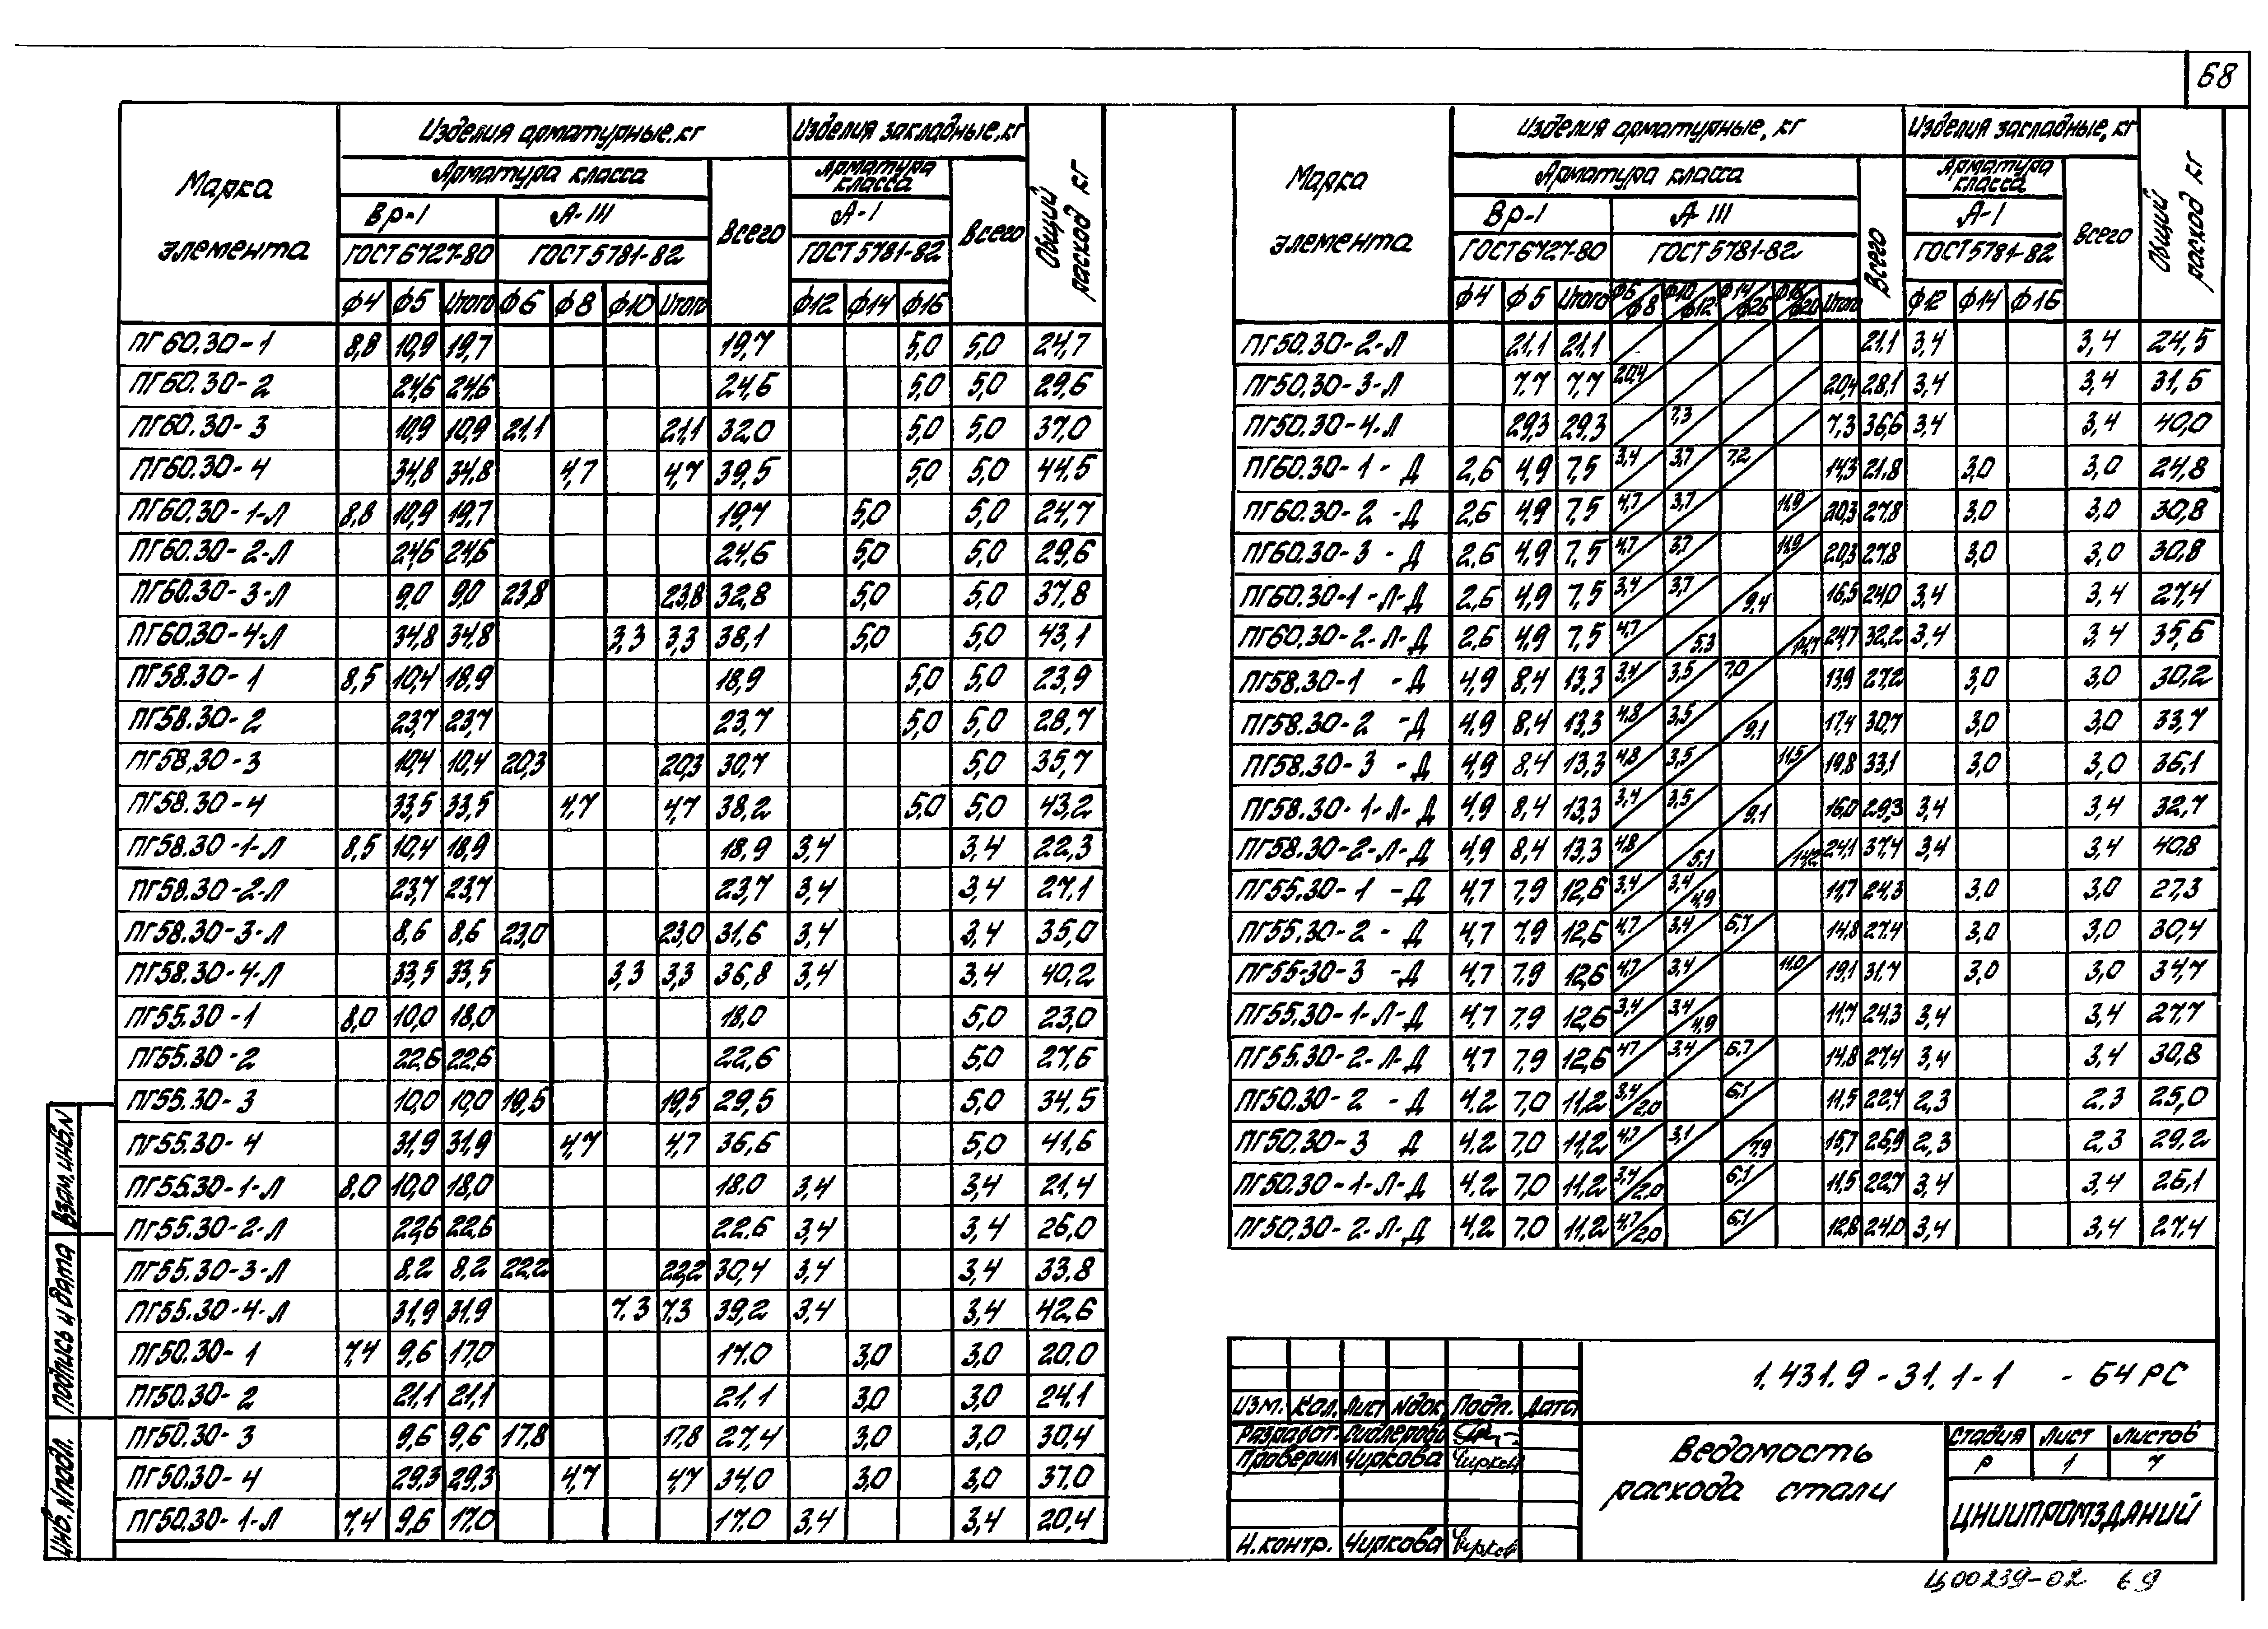 68
Марка элемента
Изделия арматурные, кг
Изделия закладные, кг
Общий расход кг
Арматура класса
Всего
Арматура класса
Всего
Вр-I
А-III
А-I
ГОСТ 6727-80
ГОСТ 5781-82
ГОСТ 5781-82
ф4 ф5 Итого ф6 ф8 ф10 Итого ф12 ф14 ф16
ПГ60.30-1 8,8 10,9 19,7 19,7 5,0 5,0 24,7
ПГ60.30-2 24,6 24,6 24,6 5,0 5,0 29,6
ПГ60.30-3 10,9 10,9 21,1 21,1 32,0 5,0 5,0 37,0
ПГ60.30-4 34,8 34,8 4,7 4,7 39,5 5,0 5,0 44,5
ПГ60.30-1-Л 8,8 10,9 19,7 19,7 5,0 5,0 24,7
ПГ60.30-2-Л 24,6 24,6 24,6 5,0 5,0 29,6
ПГ60.30-3-Л 9,0 9,0 23,8 23,8 32,8 5,0 5,0 37,8
ПГ60.30-4-Л 34,8 34,8 3,3 3,3 38,1 5,0 5,0 43,1
ПГ58.30-1 8,5 10,4 18,9 18,9 5,0 5,0 23,9
ПГ58.30-2 23,7 23,7 23,7 5,0 5,0 28,7
ПГ58,30-3 10,4 10,4 20,3 20,3 30,7 5,0 35,7
ПГ58.30-4 33,5 33,5 4,7 4,7 38,2 5,0 5,0 43,2
ПГ58.30-1-Л 8,5 10,4 18,9 18,9 3,4 3,4 22,3
ПГ58.30-2-Л 23,7 23,7 23,7 3,4 3,4 27,1
ПГ58.30-3-Л 8,6 8,6 23,0 23,0 31,6 3,4 3,4 35,0
ПГ58.30-4-Л 33,5 33,5 3,3 3,3 36,8 3,4 3,4 40,2
ПГ55.30-1 8,0 10,0 18,0 18,0 5,0 23,0
ПГ55.30-2 22,6 22,6 22,6 5,0 27,6
ПГ55.30-3 10,0 10,0 19,5 19,5 29,5 5,0 34,5
ПГ55.30-4 31,9 31,9 4,7 4,7 36,6 5,0 41,6
ПГ55.30-1-Л 8,0 10,0 18,0 18,0 3,4 3,4 21,4
ПГ55.30-2-Л 22,6 22,6 22,6 3,4 3,4 26,0
ПГ55.30-3-Л 8,2 8,2 22,2 22,2 30,4 3,4 3,4 33,8
ПГ55.30-4-Л 31,9 31,9 7,3 7,3 39,2 3,4 3,4 42,6
ПГ50.30-1 7,4 9,6 17,0 17,0 3,0 3,0 20,0
ПГ50.30-2 21,1 21,1 21,1 3,0 3,0 24,1
ПГ50.30-3 9,6 9,6 17,8 17,8 27,4 3,0 3,0 30,4
ПГ50.30-4 29,3 29,3 4,7 4,7 34,0 3,0 3,0 37,0
ПГ50.30-1-Л 7,4 9,6 17,0 17,0 3,4 3,4 20,4
Марка элемента
Изделия арматурные, кг
Изделия закладные, кг
Общий расход кг
Арматура класса
Всего
Арматура класса
Всего
Вр-I
А-III
А-I
ГОСТ 6727-80
ГОСТ 5781-82
ГОСТ 5781-82
ф4 ф5 Итого ф6/ф8 ф10/ф12 ф14/ф25 ф18/ф20 Итого ф12 ф14 ф16
ПГ50.30-2-Л 21,1 21,1 21,1 3,4 3,4 24,5
ПГ50.30-3-Л 7,7 7,7 20,4 20,4 28,1 3,4 3,4 31,5
ПГ50.30-4-Л 29,3 29,3 7,3 7,3 36,6 3,4 3,4 40,0
ПГ60.30-1-Д 2,6 4,9 7,5 3,4 3,7 7,2 14,3 21,8 3,0 3,0 24,8
ПГ60.30-2-Д 2,6 4,9 7,5 4,7 3,7 11,9 20,3 27,8 3,0 3,0 30,8
ПГ60.30-3-Д 2,6 4,9 7,5 4,7 3,7 11,9 20,3 27,8 3,0 3,0 30,8
ПГ60.30-1-Л-Д 2,6 4,9 7,5 3,4 3,7 9,4 16,5 24,0 3,4 3,4 27,4
ПГ60.30-2-Л-Д 2,6 4,9 7,5 4,7 5,3 14,7 24,7 32,2 3,4 3,4 35,6
ПГ58.30-1-Д 4,9 8,4 13,3 3,4 3,5 7,0 13,9 27,2 3,0 3,0 30,2
ПГ58.30-2-Д 4,9 8,4 13,3 4,8 3,5 9,1 17,4 30,7 3,0 3,0 33,7
ПГ58.30-3-Д 4,9 8,4 13,3 4,8 3,5 11,5 19,8 33,1 3,0 3,0 36,1
ПГ58.30-1-Л-Д 4,9 8,4 13,3 3,4 3,5 9,1 16,0 29,3 3,4 3,4 32,7
ПГ58.30-2-Л-Д 4,9 8,4 13,3 4,8 5,1 14,2 24,1 37,4 3,4 3,4 40,8
ПГ55.30-1-Д 4,7 7,9 12,6 3,4 3,4/4,9 11,7 24,3 3,0 3,0 27,3
ПГ55.30-2-Д 4,7 7,9 12,6 4,7 3,4 6,7 14,8 27,4 3,0 3,0 30,4
ПГ55-30-3-Д 4,7 7,9 12,6 4,7 3,4 11,0 19,1 31,7 3,0 3,0 34,7
ПГ55.30-1-Л-Д 4,7 7,9 12,6 3,4 3,4/4,9 11,7 24,3 3,4 3,4 27,7
ПГ55.30-2-Л-Д 4,7 7,9 12,6 4,7 3,4 6,7 14,8 27,4 3,4 3,4 30,8
ПГ50.30-2-Д 4,2 7,0 11,2 3,4/2,0 6,1 11,5 22,7 2,3 2,3 25,0
ПГ50.30-3 Д 4,2 7,0 11,2 4,7 3,1 7,9 15,7 26,9 2,3 2,3 29,2
ПГ50.30-1-Л-Д 4,2 7,0 11,2 3,4/2,0 6,1 11,5 22,7 3,4 3,4 26,1
ПГ50.30-2-Л-Д 4,2 7,0 11,2 4,7/2,0 6,1 12,8 24,0 3,4 3,4 27,4
Взам. инв. N
Подпись и дата
Инв. N подл.
1.431.9-31.1-1 - 64 РС
Изм. Кол. Лист Nдок. Подп. Дата
Разработ.
Проверил Чиркова Чирков
Н.контр. Чиркова Чирков
Ведомость расхода стали
Стадия Лист Листов
Р 1 7
ЦНИИПРОМЗДАНИЙ
Ц00239-02 69